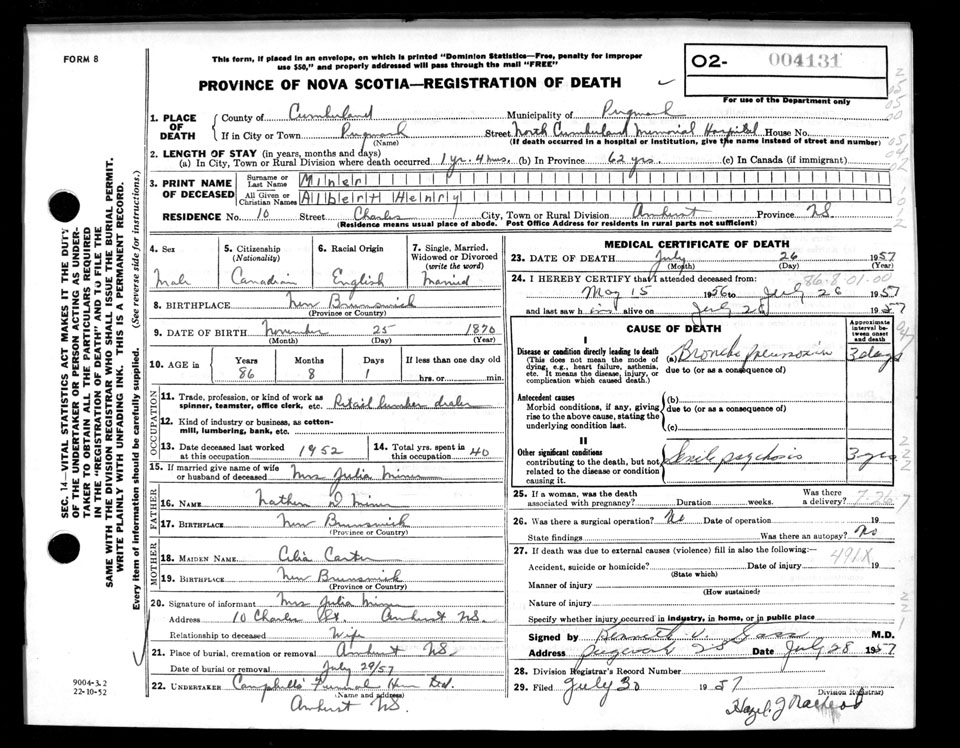 FORM 8
This form, if placed in an envelope, on which is printed "Dominion Statistics—Free, penalty for improper
use $50," and properly addressed will pass through the mail "FREE"
PROVINCE OF NOVA SCOTIA—REGISTRATION OF DEATH
02- 004131
For use of the Department only
1. PLACE OF DEATH
County of Cumberland Municipality of Pugwash
If in City or Town Pugwash Street North Cumberland Memorial Hospital House No.
(Name) (If death occurred in a hospital or institution, give the name instead of street and number)
2. LENGTH OF STAY (in years, months and days)
(a) In City, Town or Rural Division where death occurred 1 yr. 4 mos. (b) In Province 62 yrs. (c) In Canada (if immigrant)
3. PRINT NAME OF DECEASED
Surname or Last Name Miner
All Given or Christian Names Albert Henry
RESIDENCE No. 10 Street Charles City, Town or Rural Division Amherst Province NS.
(Residence means usual place of abode. Post Office Address for residents in rural parts not sufficient)
4. Sex Male
5. Citizenship (Nationality) Canadian
6. Racial Origin English
7. Single, Married, Widowed or Divorced (write the word) Married
8. BIRTHPLACE New Brunswick
(Province or Country)
9. DATE OF BIRTH November 25 1870
(Month) (Day) (Year)
10. AGE in Years 86 Months 8 Days 1 If less than one day old
hrs. or min.
OCCUPATION
11. Trade, profession, or kind of work as
spinner, teamster, office clerk, etc. Retail lumber dealer
12. Kind of industry or business, as cotton-
mill, lumbering, bank, etc.
13. Date deceased last worked at this occupation 1952
14. Total yrs. spent in this occupation 40
15. If married give name of wife
or husband of deceased Mrs Julia Miner
FATHER
16. NAME Nathen D Miner
17. BIRTHPLACE New Brunswick
(Province or Country)
MOTHER
18. MAIDEN NAME Celia Carter
19. BIRTHPLACE New Brunswick
(Province or Country)
20. Signature of informant Mrs Julia Miner
Address 10 Charles St. Amherst NS.
Relationship to deceased Wife
21. Place of burial, cremation or removal Amherst NS
Date of burial or removal July 29/57
22. UNDERTAKER Campbells' Funeral Home Ltd.
(Name and address)
Amherst NS.
MEDICAL CERTIFICATE OF DEATH
23. DATE OF DEATH July 26 1957
(Month) (Day) (Year)
24. I HEREBY CERTIFY that I attended deceased from: 86-8-01-00
May 15 1956 to July 26 1957
and last saw him alive on July 26 1957
CAUSE OF DEATH
Approximate interval between onset and death
I
Disease or condition directly leading to death (a) Broncho pneumonia 3 days
(This does not mean the mode of
dying, e.g., heart failure, asthenia,
etc. It means the disease, injury, or
complication which caused death.)
due to (or as a consequence of)
Antecedent causes (b)
Morbid conditions, if any, giving
rise to the above cause, stating the
underlying condition last
due to (or as a consequence of)
(c)
II
Other significant conditions
contributing to the death, but not
related to the disease or condition
causing it.
Senile psychosis 3 yrs
25. If a woman, was the death
associated with pregnancy? Duration weeks. Was there a delivery? 7-26-7
26. Was there a surgical operation? No Date of operation 19
State findings Was there an autopsy? No
27. If death was due to external causes (violence) fill in also the following:—
491X
Accident, suicide or homicide? Date of injury 19
(State which)
Manner of injury
(How sustained)
Nature of injury
Specify whether injury occurred in industry, in home, or in public place
Signed by Kenneth V. Gass M.D.
Address Pugwash NS Date July 28 1957
28. Division Registrar's Record Number
29. Filed July 30 1957
Division Registrar)
Hazel J MacLeod
SEC. 14—VITAL STATISTICS ACT MAKES IT THE DUTY
OF THE UNDERTAKER OR PERSON ACTING AS UNDER-
TAKER TO OBTAIN ALL THE PARTICULARS REQUIRED
IN THE "REGISTRATION OF DEATH" AND TO FILE THE
SAME WITH THE DIVISION REGISTRAR WHO SHALL ISSUE THE BURIAL PERMIT.
WRITE PLAINLY WITH UNFADING INK. THIS IS A PERMANENT RECORD.
Every item of information should be carefully supplied. (See reverse side for instructions.)
9004-3.2
22-10-52